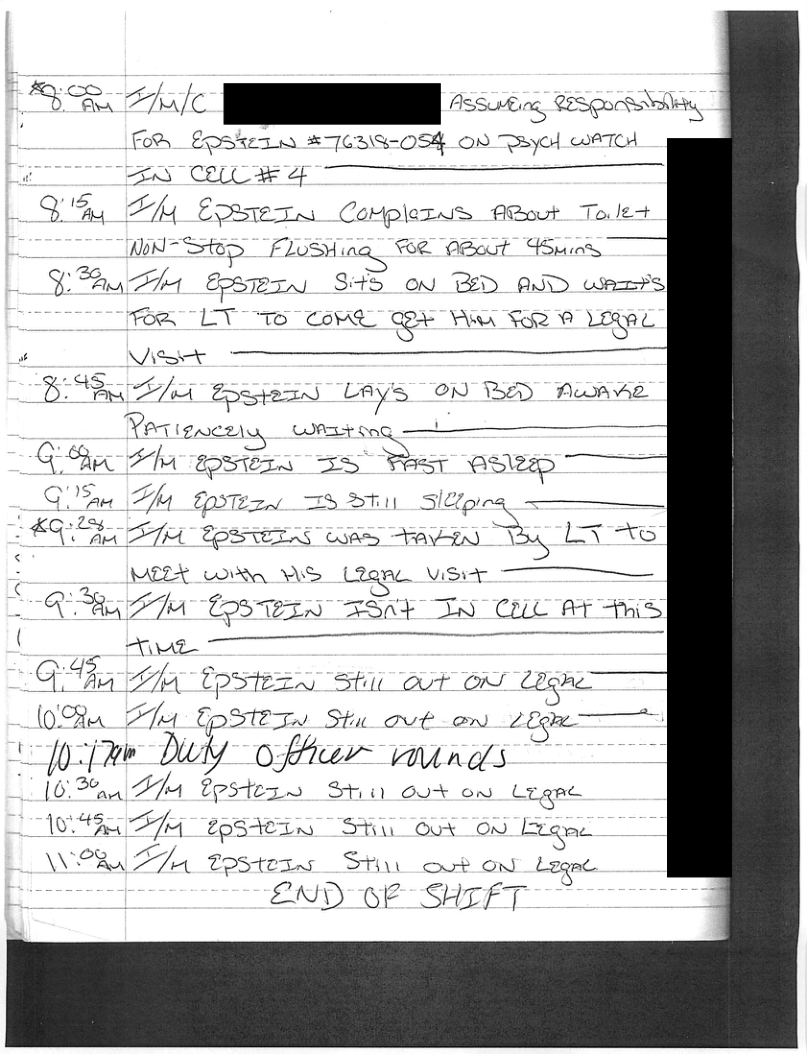 *8:00 AM I/M/C ASSUMING RESPONSIBILITY
FOR EPSTEIN #76318-054 ON PSYCH WATCH
IN CELL #4
8:15 AM I/M EPSTEIN COMPLAINS ABOUT TOILET
NON-STOP FLUSHING FOR ABOUT 45MINS
8:30 AM I/M EPSTEIN SITS ON BED AND WAITS
FOR LT TO COME GET HIM FOR A LEGAL
VISIT
8:45 AM I/M EPSTEIN LAY'S ON BED AWAKE
PATIENCELY WAITING
9:00 AM I/M EPSTEIN IS FAST ASLEEP
9:15 AM I/M EPSTEIN IS STILL SLEEPING
*9:28 AM I/M EPSTEIN WAS TAKEN BY LT TO
MEET WITH HIS LEGAL VISIT
9:30 AM I/M EPSTEIN ISN'T IN CELL AT THIS
TIME
9:45 AM I/M EPSTEIN STILL OUT ON LEGAL
10:00 AM I/M EPSTEIN STILL OUT ON LEGAL
10:17am Duty officer rounds
10:30 AM I/M EPSTEIN STILL OUT ON LEGAL
10:45 AM I/M EPSTEIN STILL OUT ON LEGAL
11:00 AM I/M EPSTEIN STILL OUT ON LEGAL
END OF SHIFT